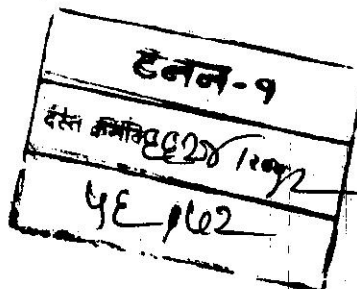 टनन-१
दस्त क्रमांक ६६२४ /२०१२
५६ /७२